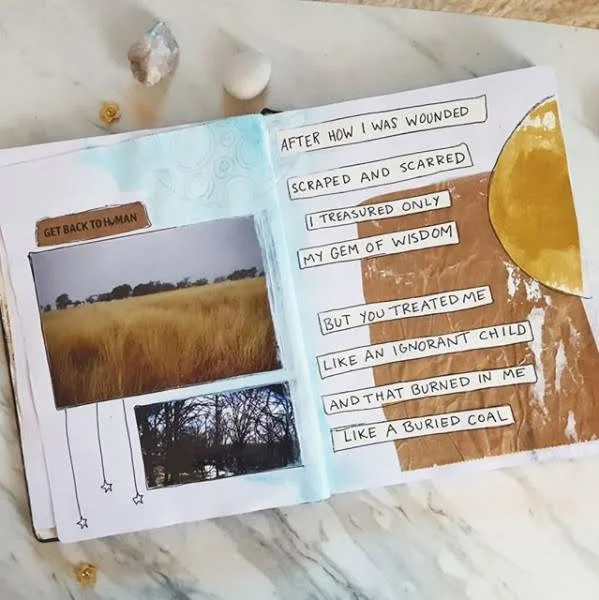 GET BACK TO HUMAN
AFTER HOW I WAS WOUNDED
SCRAPED AND SCARRED
I TREASURED ONLY
MY GEM OF WISDOM
BUT YOU TREATED ME
LIKE AN IGNORANT CHILD
AND THAT BURNED IN ME
LIKE A BURIED COAL